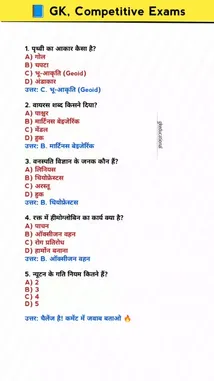 📘 GK, Competitive Exams
1. पृथ्वी का आकार कैसा है?
A) गोल
B) चपटा
C) भू-आकृति (Geoid)
D) अंडाकार
उत्तर: C. भू-आकृति (Geoid)
2. वायरस शब्द किसने दिया?
A) पाश्चर
B) मार्टिनस बेइजेरिंक
C) मेंडल
D) हुक
उत्तर: B. मार्टिनस बेइजेरिंक
3. वनस्पति विज्ञान के जनक कौन हैं?
A) लिनियस
B) थियोफ्रेस्टस
C) अरस्तू
D) हुक
उत्तर: B. थियोफ्रेस्टस
4. रक्त में हीमोग्लोबिन का कार्य क्या है?
A) पाचन
B) ऑक्सीजन वहन
C) रोग प्रतिरोध
D) हार्मोन बनाना
उत्तर: B. ऑक्सीजन वहन
5. न्यूटन के गति नियम कितने हैं?
A) 2
B) 3
C) 4
D) 5
उत्तर: चैलेंज है! कमेंट में जवाब बताओ 🔥